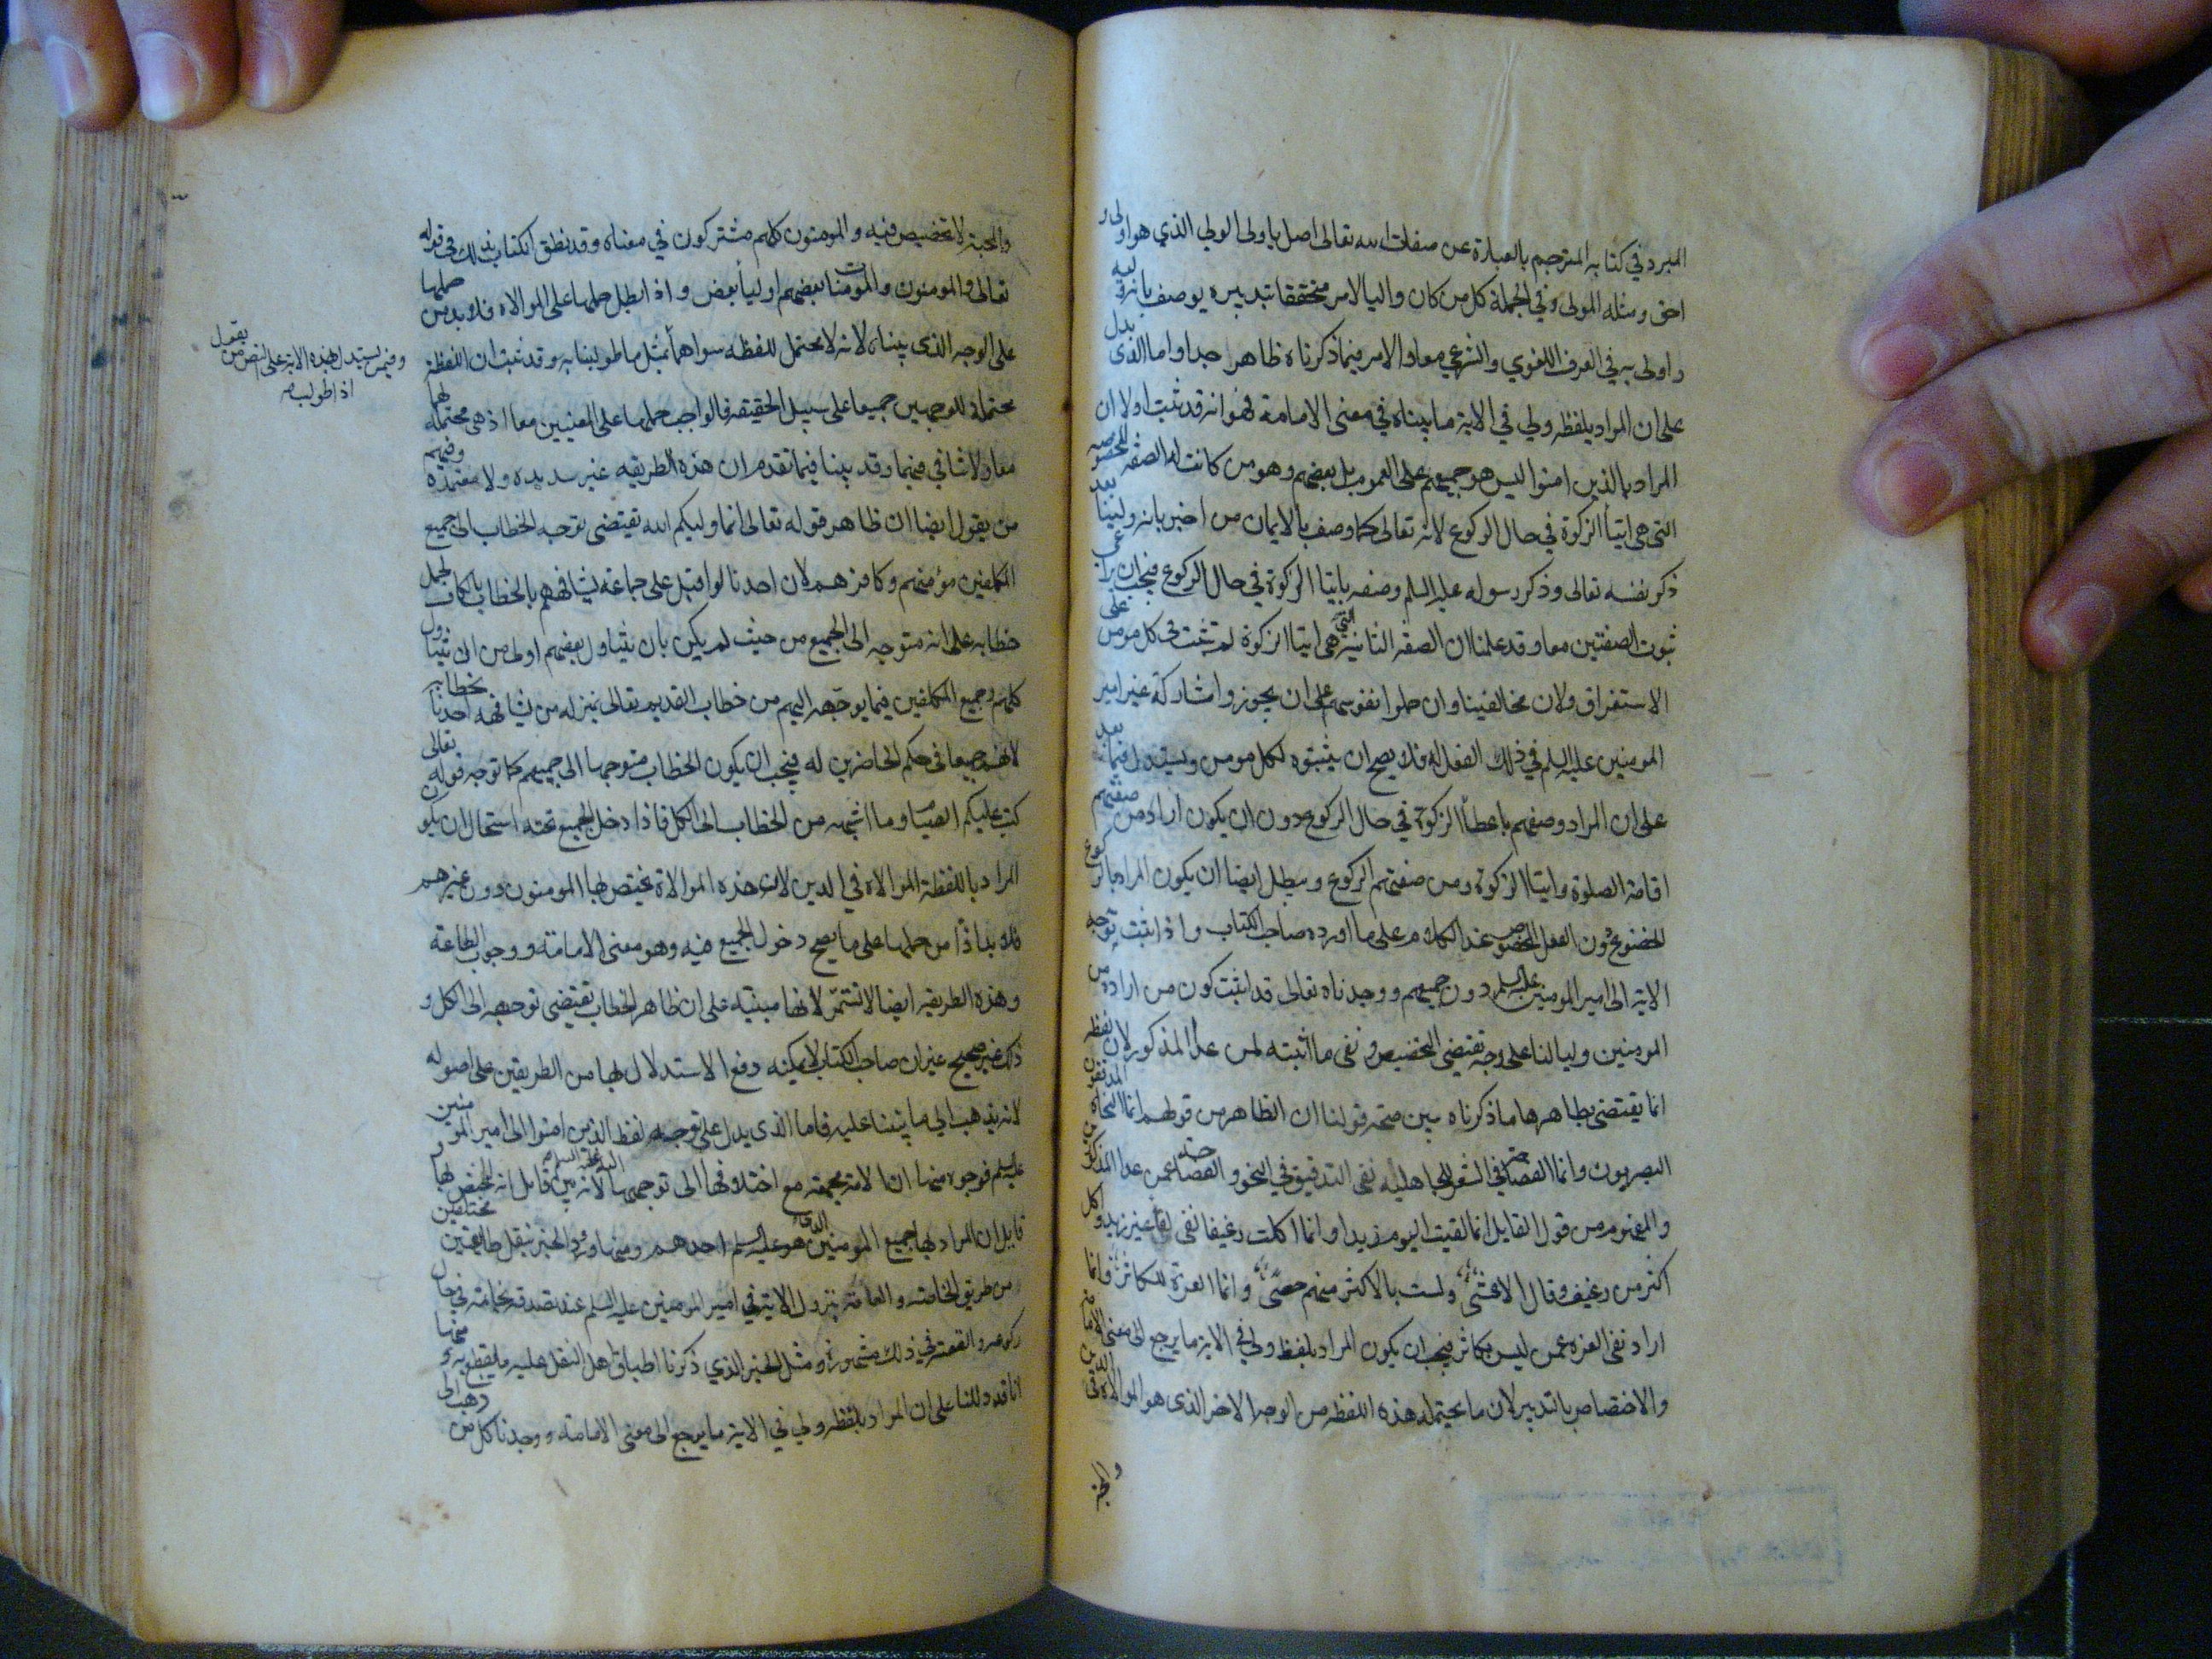 المبرد في كتابه المترجم بالعبارة عن صفات الله تعالى اصل ياولى الولي الذي هو اولى و
احق ومثله المولى وفي الجملة كل من كان واليا لامر متحققا بتدبيره يوصف بانه وليه
واولى به في العرف اللغوي والشرعي معا والامر فيما ذكرناه ظاهر جدا واما الذي يدل
على ان المراد بلفظه ولي في الاية ما بيناه في معنى الامامة فهو انه قد ثبت اولا ان
المراد بالذين امنوا ليس هو جميعهم على العموم بل بعضهم وهو من كانت له الصفه المخصوصه
التي هي ايتا الزكوة في حال الركوع لانه تعالى كما وصف بالايمان من اخبر بانه ولينا بعد
ذكر نفسه تعالى وذكر رسوله عليه السلم وصفه بايتا الزكوة في حال الركوع فيجب ان يراعى
ثبوت الصفتين معا وقد علمنا ان الصفه الثانية التي هي ايتا الزكوة لم تثبت في كل مومن على
الاستغراق ولان مخالفينا وان حملوا نفوسهم على ان يجوزوا مشاركة غير امير
المومنين عليه السلم في ذلك الفعل له فلا يصح ان يثبتوه لكل مومن وليستدل فيما بعد
على ان المراد وصفهم باعطأ الزكوة في حال الركوع دون ان يكون اراد ومن صفتهم
اقامة الصلوة وايتا الزكوة ومن صفتهم الركوع ويبطل ايضا ان يكون المراد بالركوع
الخضوع دون الفعل المخصوص عند الكلام على ما اورده صاحب الكتاب واذا ثبت توجه
الاية الى امير المومنين عليه السلم دون جميعهم ووجدناه تعالى قد اثبت كون من اراده من
المومنين وليا لنا على وجه يقتضي التخصيص ونفى ما اثبته لمن عدا المذكور لان لفظه
انما يقتضي بظاهرها ما ذكرناه يبين صحة قولنا ان الظاهر من قولهم انما النحاة المدققون
البصريون وانما الفصاحة في الشعر للجاهلية نفى التدقيق في النحو والفصاحة عمن عدا المذكورين
والمفهوم من قول القايل انما لقيت اليوم زيدا وانما اكلت رغيفا نفى لقأ غير زيد واكل
اكثر من رغيف وقال الاعشى ولست بالاكثر منهم حصى وانما العزة للكاثر وانما
اراد نفى العزه عمن ليس بكاثر فيجب ان يكون المراد بلفظ ولي في الاية ما يرجع الى معنى الامامة
والاختصاص بالتدبير لان ما يحتمله هذه اللفظه من الوجه الاخر الذي هو الموالاة في الدين
والمحبة لا تخصيص فيه والمومنون كلهم مشتركون في معناه وقد نطق الكتاب بذلك في قوله
تعالى والمومنون والمومنات بعضهم اوليأ بعض واذا بطل حملها على الموالاه فلا بد من حملها
على الوجه الذي بيناه لانه لا يحتمل للفظه سواهما بمثل ما طولبنا به وقد ثبت ان اللفظة
محتملة للوجهين جميعا على سبيل الحقيقه فالواجب حملها على المعنيين معا اذ هي محتملة لهما
معا ولا تنافي فيهما وقد بينا فيما تقدم ان هذه الطريقه غير سديده ولا معتمده وفيهم
من يقول ايضا ان ظاهر قوله تعالى انما وليكم الله يقتضى توجه الخطاب الى جميع
المكلفين مؤمنهم وكافرهم لان احدنا لو اقبل على جماعة يشافههم بالخطاب بالكاف لحمل
خطابه على انه متوجه الى الجميع من حيث لم يكن بان يتناول بعضهم اولى من ان يتناول
كلهم وجميع المكلفين فيما يوجهه اليهم من خطاب القديم تعالى بمنزله من يشافهه احدنا بخطابه
لانهم جميعا في حكم الحاضرين له فيجب ان يكون الخطاب متوجها الى جميعهم كما توجه قوله تعالى
كتب عليكم الصيام وما اشبهه من الخطاب الى الكل فاذا دخل الجميع تحته استحال ان يكون
المراد باللفظة الموالاه في الدين لان هذه الموالاة يختص بها المومنون دون غيرهم
فلا بد اذًا من حملها على ما يصح دخول الجميع فيه وهو معنى الامامة ووجوب الطاعة
وهذه الطريقه ايضا لا تستمر لانها مبنيه على ان ظاهر الخطاب يقتضي توجهه الى الكل و
ذلك غير صحيح غير ان صاحب الكتاب لا يمكنه دفع الاستدلال بها من الطريقين على اصوله
لانه يذهب الى ما بيننا عليه فاما الذي يدل على توجه لفظ الذين امنوا الى امير المومنين
عليه السلم فوجوه منها ان الامة مجمعة مع اختلافها الى توجهها اليه عليه السلم لانه بين قايل انه المختص بها و
قايل ان المراد بها جميع المومنين الذي هو عليه السلم احدهم ومنها ورود الخبر بنقل طائفتين مختلفتين
من طريق الخاصة والعامة بنزول الاية في امير المومنين عليه السلم عند تصدقه بخاتمه في حال
ركوعه والقصة في ذلك مشهورة ومثل الخبر الذي ذكرنا اطباق اهل النقل عليه ما يقطع به ومنها
انا قد دللنا على ان المراد بلفظه ولي في الاية ما يرجع الى معنى الامامة ووجدنا كل من ذهب الى
وفيمن يستدل بهذه الاية على النص من يقول
اذا طولب